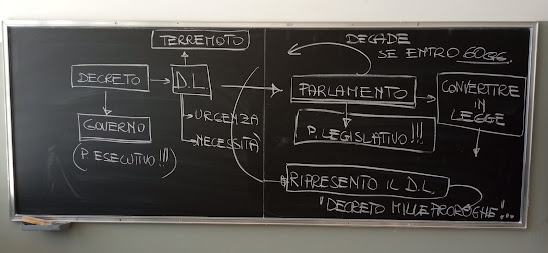 TERREMOTO
DECRETO
D.L.
GOVERNO
(P. ESECUTIVO !!!)
URGENZA
NECESSITÀ
DECADE
SE ENTRO 60GG.
PARLAMENTO
P. LEGISLATIVO!!!
CONVERTIRE
IN
LEGGE
RIPRESENTO IL D.L.
"DECRETO MILLE PROROGHE"...